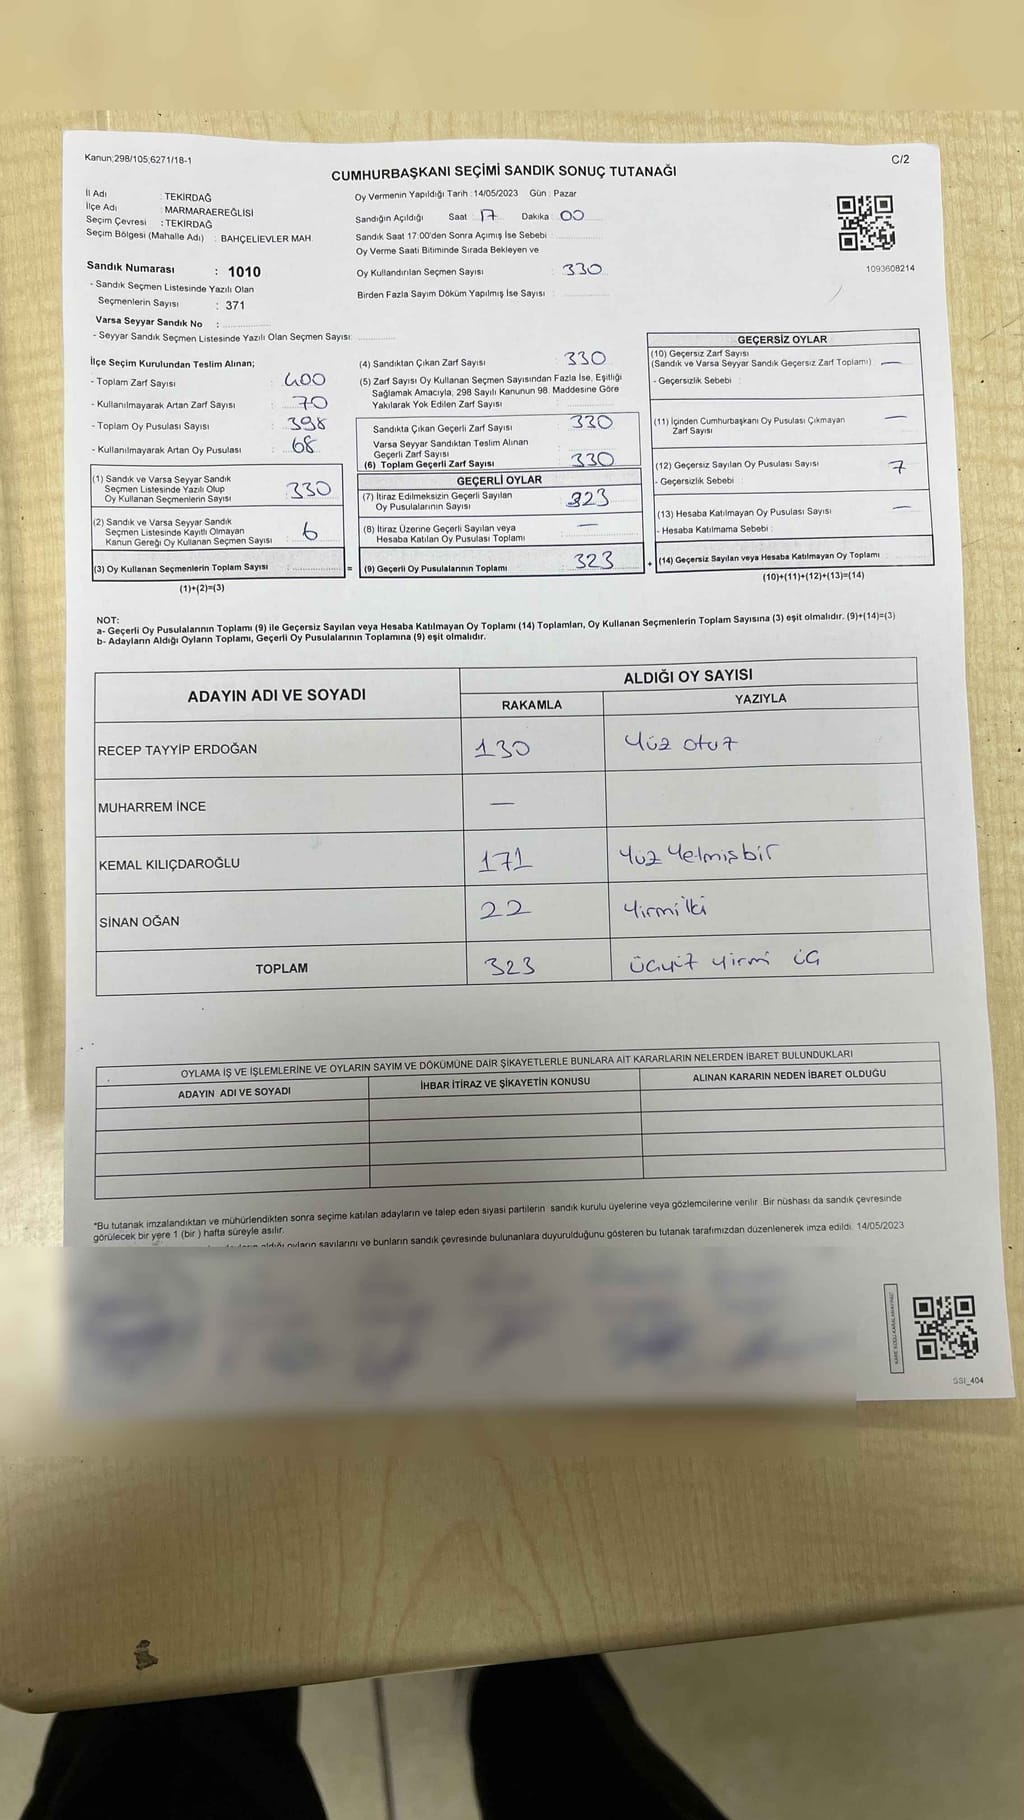 Kanun;298/105,6271/18-1
C/2
CUMHURBAŞKANI SEÇİMİ SANDIK SONUÇ TUTANAĞI
İl Adı : TEKİRDAĞ
İlçe Adı : MARMARAEREĞLİSİ
Seçim Çevresi : TEKİRDAĞ
Seçim Bölgesi (Mahalle Adı) : BAHÇELİEVLER MAH.
Oy Vermenin Yapıldığı Tarih : 14/05/2023 Gün : Pazar
Sandığın Açıldığı Saat 17 Dakika : 00
Sandık Saat 17:00'den Sonra Açımış İse Sebebi
Oy Verme Saati Bitiminde Sırada Bekleyen ve
Oy Kullandırılan Seçmen Sayısı : 330
Birden Fazla Sayım Döküm Yapılmış İse Sayısı :
1093608214
Sandık Numarası : 1010
- Sandık Seçmen Listesinde Yazılı Olan
Seçmenlerin Sayısı : 371
Varsa Seyyar Sandık No :
- Seyyar Sandık Seçmen Listesinde Yazılı Olan Seçmen Sayısı:
İlçe Seçim Kurulundan Teslim Alınan;
- Toplam Zarf Sayısı : 400
- Kullanılmayarak Artan Zarf Sayısı : 70
- Toplam Oy Pusulası Sayısı : 398
- Kullanılmayarak Artan Oy Pusulası : 68
(1) Sandık ve Varsa Seyyar Sandık
Seçmen Listesinde Yazılı Olup
Oy Kullanan Seçmenlerin Sayısı : 330
(2) Sandık ve Varsa Seyyar Sandık
Seçmen Listesinde Kayıtlı Olmayan
Kanun Gereği Oy Kullanan Seçmen Sayısı : 6
(3) Oy Kullanan Seçmenlerin Toplam Sayısı :
(1)+(2)=(3)
=
(4) Sandıktan Çıkan Zarf Sayısı : 330
(5) Zarf Sayısı Oy Kullanan Seçmen Sayısından Fazla İse, Eşitliği
Sağlamak Amacıyla, 298 Sayılı Kanunun 98. Maddesine Göre
Yakılarak Yok Edilen Zarf Sayısı :
Sandıkta Çıkan Geçerli Zarf Sayısı : 330
Varsa Seyyar Sandıktan Teslim Alınan
Geçerli Zarf Sayısı :
(6) Toplam Geçerli Zarf Sayısı : 330
GEÇERLİ OYLAR
(7) İtiraz Edilmeksizin Geçerli Sayılan
Oy Pusulalarının Sayısı : 323
(8) İtiraz Üzerine Geçerli Sayılan veya
Hesaba Katılan Oy Pusulası Toplamı : —
(9) Geçerli Oy Pusulalarının Toplamı : 323
+
GEÇERSİZ OYLAR
(10) Geçersiz Zarf Sayısı
(Sandık ve Varsa Seyyar Sandık Geçersiz Zarf Toplamı) : —
- Geçersizlik Sebebi :
(11) İçinden Cumhurbaşkanı Oy Pusulası Çıkmayan
Zarf Sayısı : —
(12) Geçersiz Sayılan Oy Pusulası Sayısı : 7
- Geçersizlik Sebebi :
(13) Hesaba Katılmayan Oy Pusulası Sayısı : —
- Hesaba Katılmama Sebebi :
(14) Geçersiz Sayılan veya Hesaba Katılmayan Oy Toplamı :
(10)+(11)+(12)+(13)=(14)
NOT:
a- Geçerli Oy Pusulalarının Toplamı (9) ile Geçersiz Sayılan veya Hesaba Katılmayan Oy Toplamı (14) Toplamları, Oy Kullanan Seçmenlerin Toplam Sayısına (3) eşit olmalıdır. (9)+(14)=(3)
b- Adayların Aldığı Oyların Toplamı, Geçerli Oy Pusulalarının Toplamına (9) eşit olmalıdır.
ADAYIN ADI VE SOYADI
ALDIĞI OY SAYISI
RAKAMLA YAZIYLA
RECEP TAYYİP ERDOĞAN 130 Yüz otuz
MUHARREM İNCE —
KEMAL KILIÇDAROĞLU 171 Yüz Yetmişbir
SİNAN OĞAN 22 Yirmiiki
TOPLAM 323 üçyüz yirmi üç
OYLAMA İŞ VE İŞLEMLERİNE VE OYLARIN SAYIM VE DÖKÜMÜNE DAİR ŞİKAYETLERLE BUNLARA AİT KARARLARIN NELERDEN İBARET BULUNDUKLARI
ADAYIN ADI VE SOYADI İHBAR İTİRAZ VE ŞİKAYETİN KONUSU ALINAN KARARIN NEDEN İBARET OLDUĞU
*Bu tutanak imzalandıktan ve mühürlendikten sonra seçime katılan adayların ve talep eden siyasi partilerin sandık kurulu üyelerine veya gözlemcilerine verilir. Bir nüshası da sandık çevresinde
görülecek bir yere 1 (bir ) hafta süreyle asılır.
aldığı oyların sayılarını ve bunların sandık çevresinde bulunanlara duyurulduğunu gösteren bu tutanak tarafımızdan düzenlenerek imza edildi. 14/05/2023
SSI_404